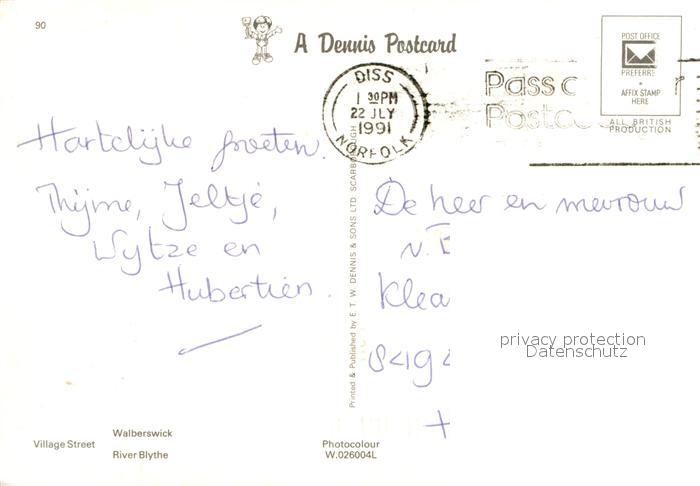 90
A Dennis Postcard
DISS
1 30PM
22 JLY
1991
NORFOLK
POST OFFICE
PREFERRED
AFFIX STAMP
HERE
ALL BRITISH
PRODUCTION
Hartelijke groeten.
Thijme, Jeltje,
Wytze en
Hubertien.
De heer en mevrouw
Klea
Printed & Published by E. T. W. DENNIS & SONS LTD SCARBOROUGH
privacy protection
Datenschutz
Village Street
Walberswick
River Blythe
Photocolour
W.026004L